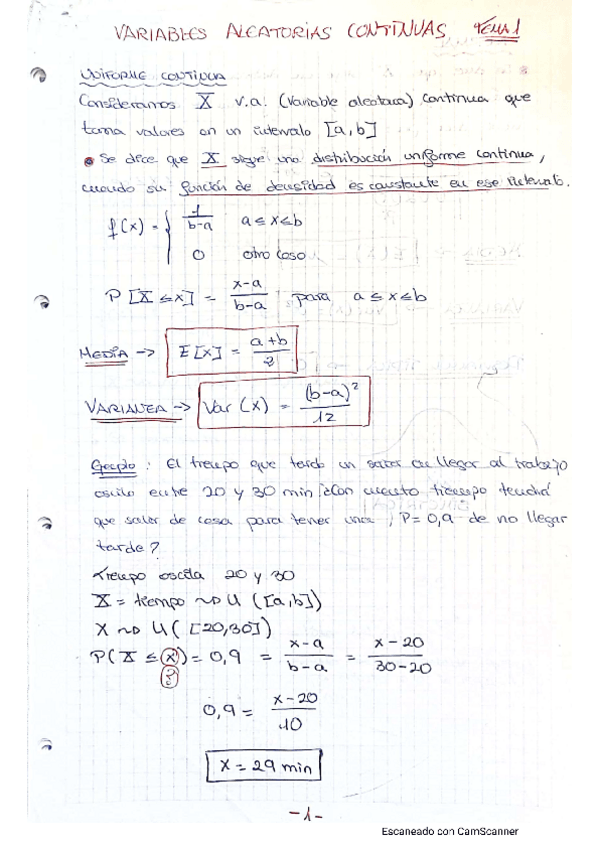 VARIABLES ALEATORIAS CONTINUAS TEMA 1
UNIFORME CONTINUA
Consideramos X v.a. (variable aleatoria) continua que
toma valores en un intervalo [a,b]
• Se dice que X sigue una distribución uniforme continua,
cuando su función de densidad es constante en ese intervalo.
f(x) = { 1/(b-a) a ≤ x ≤ b
0 otro caso
P [X ≤ x] = (x-a)/(b-a) para a ≤ x ≤ b
MEDIA -> E[x] = (a+b)/2
VARIANZA -> Var (x) = (b-a)²/12
Ejemplo: El tiempo que tarda un señor en llegar al trabajo
oscila entre 20 y 30 min ¿Con cuento tiempo tendrá
que salir de casa para tener una P = 0,9 de no llegar
tarde?
Tiempo oscila 20 y 30
X = tiempo ~> U ([a,b])
X ~> U ([20,30])
P(X ≤ x) = 0,9 = (x-a)/(b-a) = (x-20)/(30-20)
?
0,9 = (x-20)/10
X = 29 min
-1-
Escaneado con CamScanner